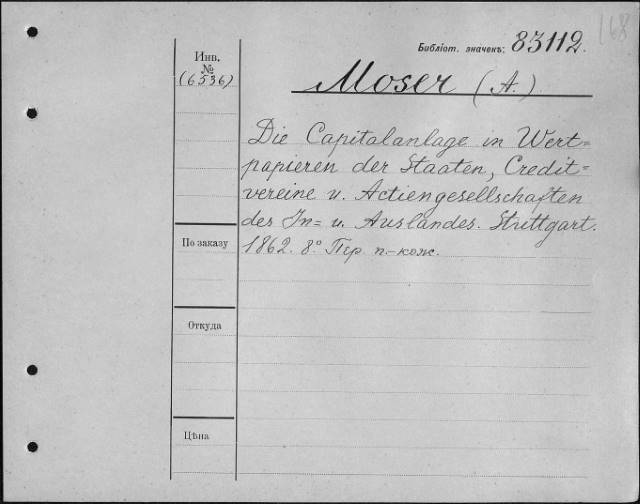 168
Библіот. значекъ: 83112.
Инв.
№
(6536)
Moser (A.)
Die Capitalanlage in Wert=
papieren der Staaten, Credit=
vereine u. Actiengesellschaften
des In= u. Auslandes. Stuttgart.
1862. 8º Пер. п.-кож.
По заказу
Откуда
Цѣна